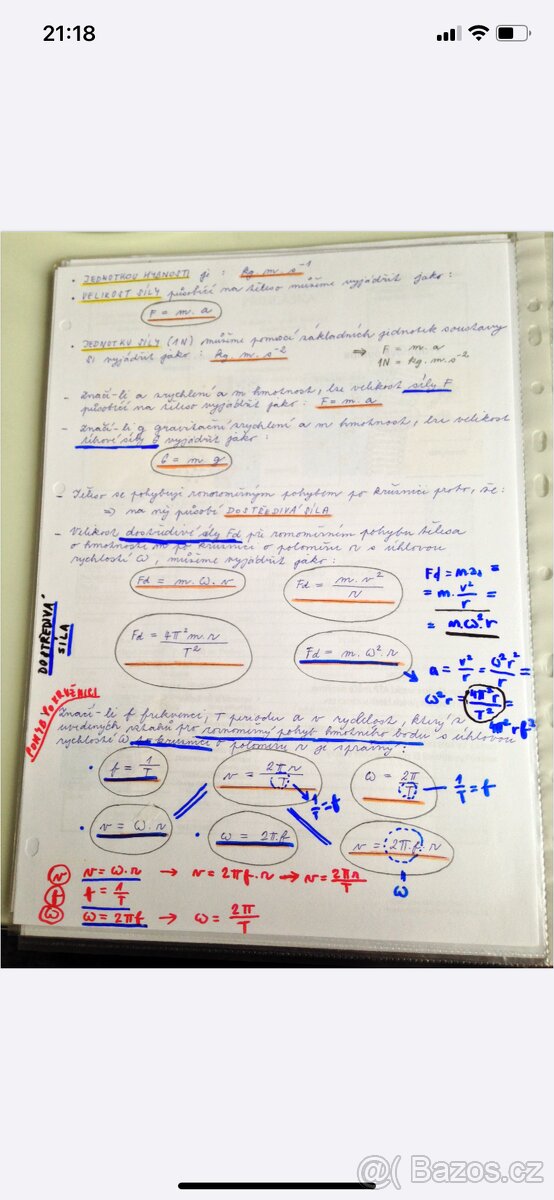 21:18
• JEDNOTKOU HYBNOSTI je : kg. m. s⁻¹
• VELIKOST SÍLY působící na těleso můžeme vyjádřit jako :
F = m. a
• JEDNOTKU SÍLY (1N) můžeme pomocí základních jednotek soustavy
SI vyjádřit jako : kg. m. s⁻²
⇒ F = m. a
1N = kg. m. s⁻²
- Značí-li a zrychlení a m hmotnost, lze velikost síly F
působící na těleso vyjádřit jako : F = m. a
- Značí-li g gravitační zrychlení a m hmotnost, lze velikost
tíhové síly G vyjádřit jako :
G = m g
- Těleso se pohybuje rovnoměrným pohybem po kružnici proto, že:
⇒ na něj působí DOSTŘEDIVÁ SÍLA
- Velikost dostředivé síly Fd při rovnoměrném pohybu tělesa
o hmotnosti m po kružnici o poloměru r s úhlovou
rychlostí ω, můžeme vyjádřit jako :
Fd = m. ω. r
Fd = m. v² / r
Fd = m.ad =
= m. v²/r =
= mω²r
DOSTŘEDIVÁ
SÍLA
Fd = 4π² m. r / T²
Fd = m. ω². r
a = v²/r = ω²r²/r =
ω²r = 4π²r / T² =
4π²rf²
POHYB PO KRUŽNICI
Značí-li f frekvenci, T periodu a v rychlost, který z
uvedených vztahů pro rovnoměrný pohyb hmotného bodu s úhlovou
rychlostí ω po kružnici o poloměru r je správný :
• f = 1/T
v = 2π r / T
1/T = f
ω = 2π / T
1/T = f
• v = ω. r
• ω = 2π. f
v = 2π. f. r
ω
v v = ω. r → v = 2π f. r → v = 2πr / T
f f = 1/T
ω ω = 2πf → ω = 2π / T
@( Bazos.cz